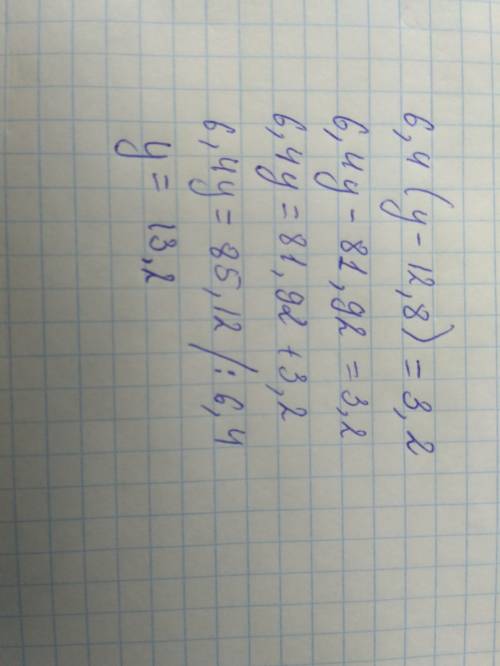 6,4(y-12,8)=3,2
6,4y-81,92=3,2
6,4y=81,92+3,2
6,4y=85,12/:6,4
y=13,2